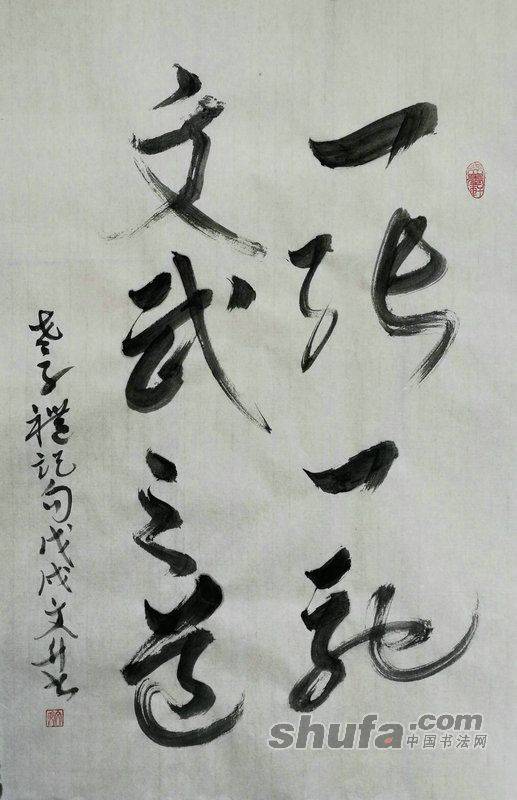 一张一弛
文武之道
老子禮記句戊戌文升书
shufa.com
中国书法网